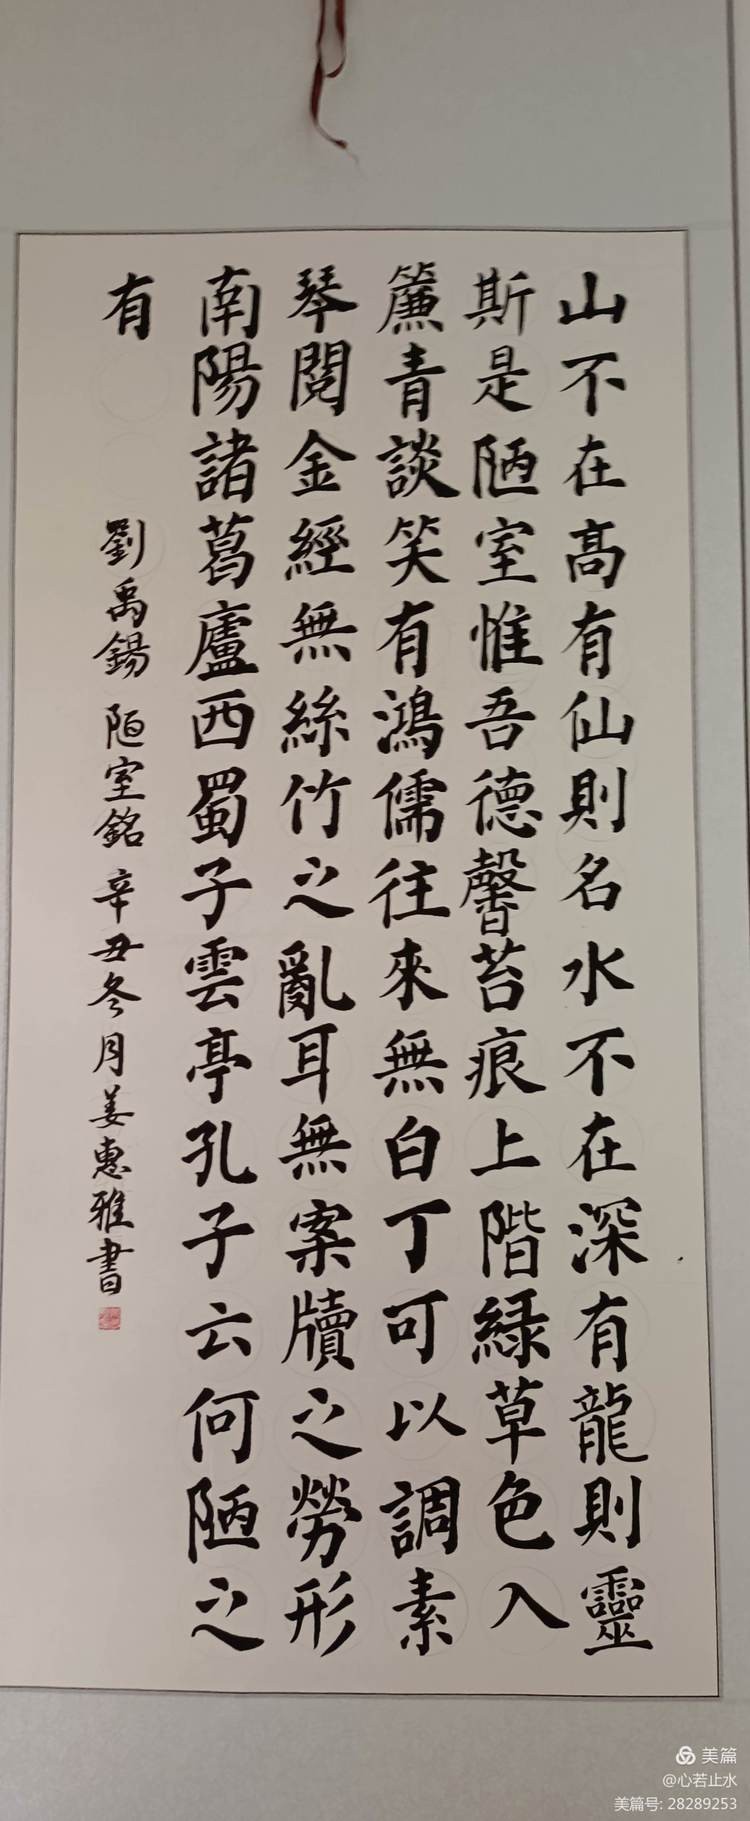 山不在高有仙則名水不在深有龍則靈
斯是陋室惟吾德馨苔痕上階緑草色入
簾青談笑有鴻儒往來無白丁可以調素
琴閱金經無絲竹之亂耳無案牘之勞形
南陽諸葛廬西蜀子雲亭孔子云何陋之
有
劉禹錫陋室銘辛丑冬月姜惠雅書
美篇
@心若止水
美篇号: 28289253